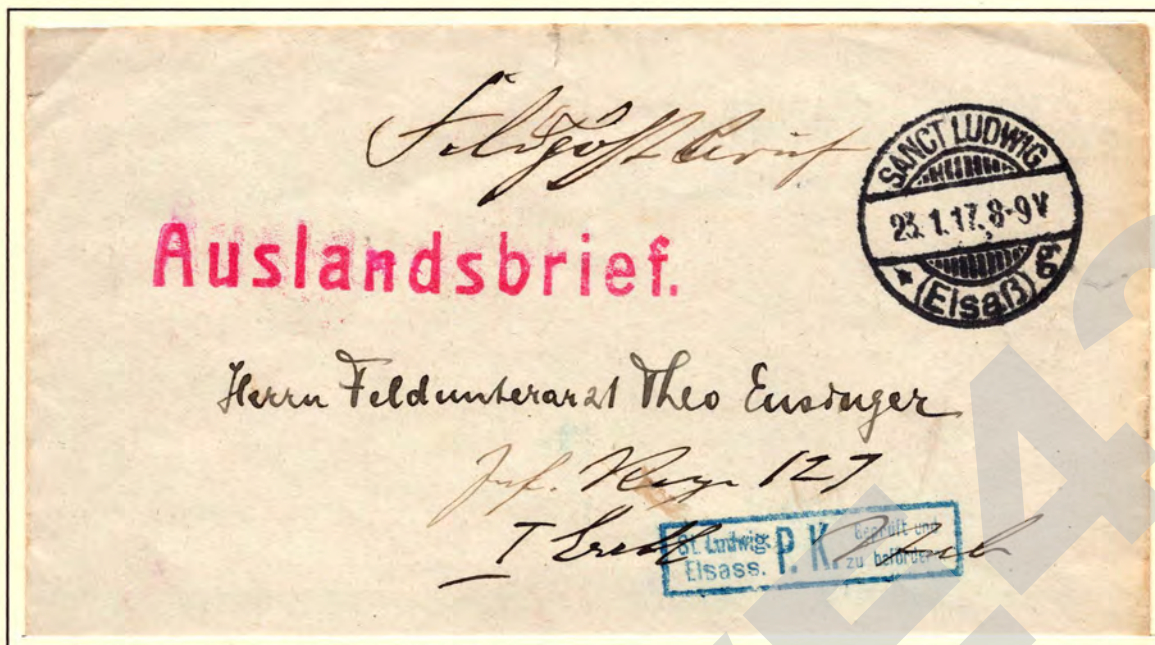 Feldpostbrief
SANCT LUDWIG
23.1.17. 8-9V
* (Elsaß) g
Auslandsbrief.
Herrn Feldunterarzt Theo Ensinger
Inf. Reg. 127
I
St. Ludwig. Elsass. P. K. Geprüft und zu befördern